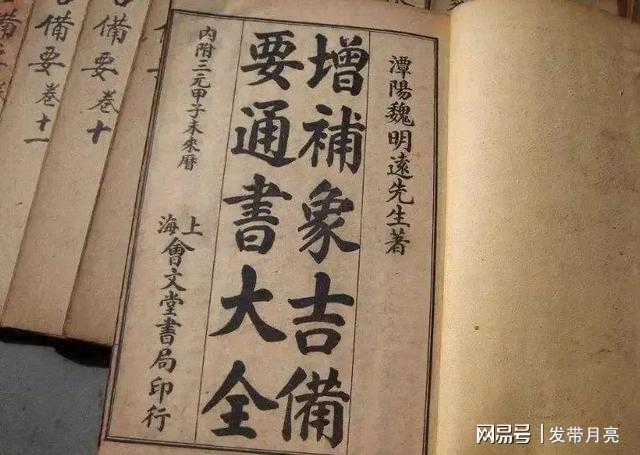 潭陽魏明遠先生著
增補象吉備
要通書大全
內附三元甲子未來曆
上海會文堂書局印行
吉備要卷十
吉備要卷十一
网易号 | 发带月亮